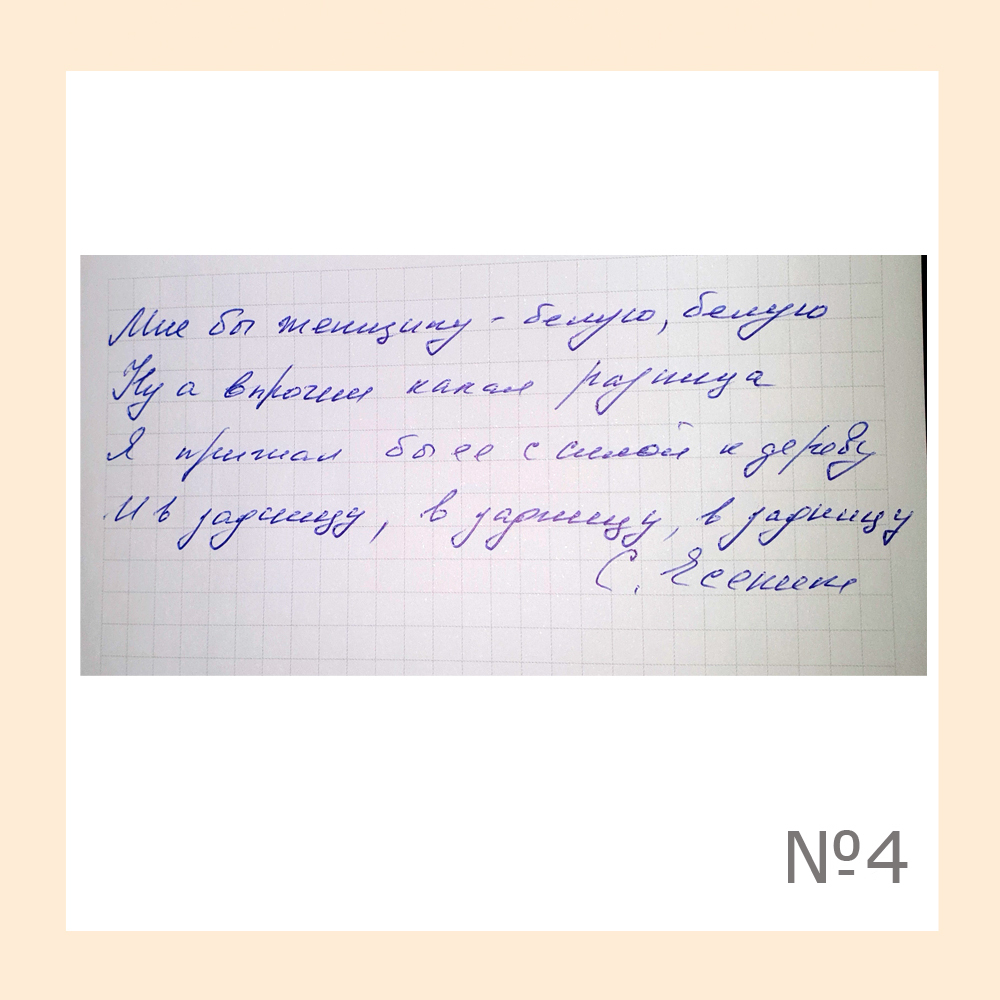 Мне бы женщину - белую, белую
Ну а впрочем какая разница
Я прижал бы ее с силой к дереву
И в задницу, в задницу, в задницу
С. Есенин
№4